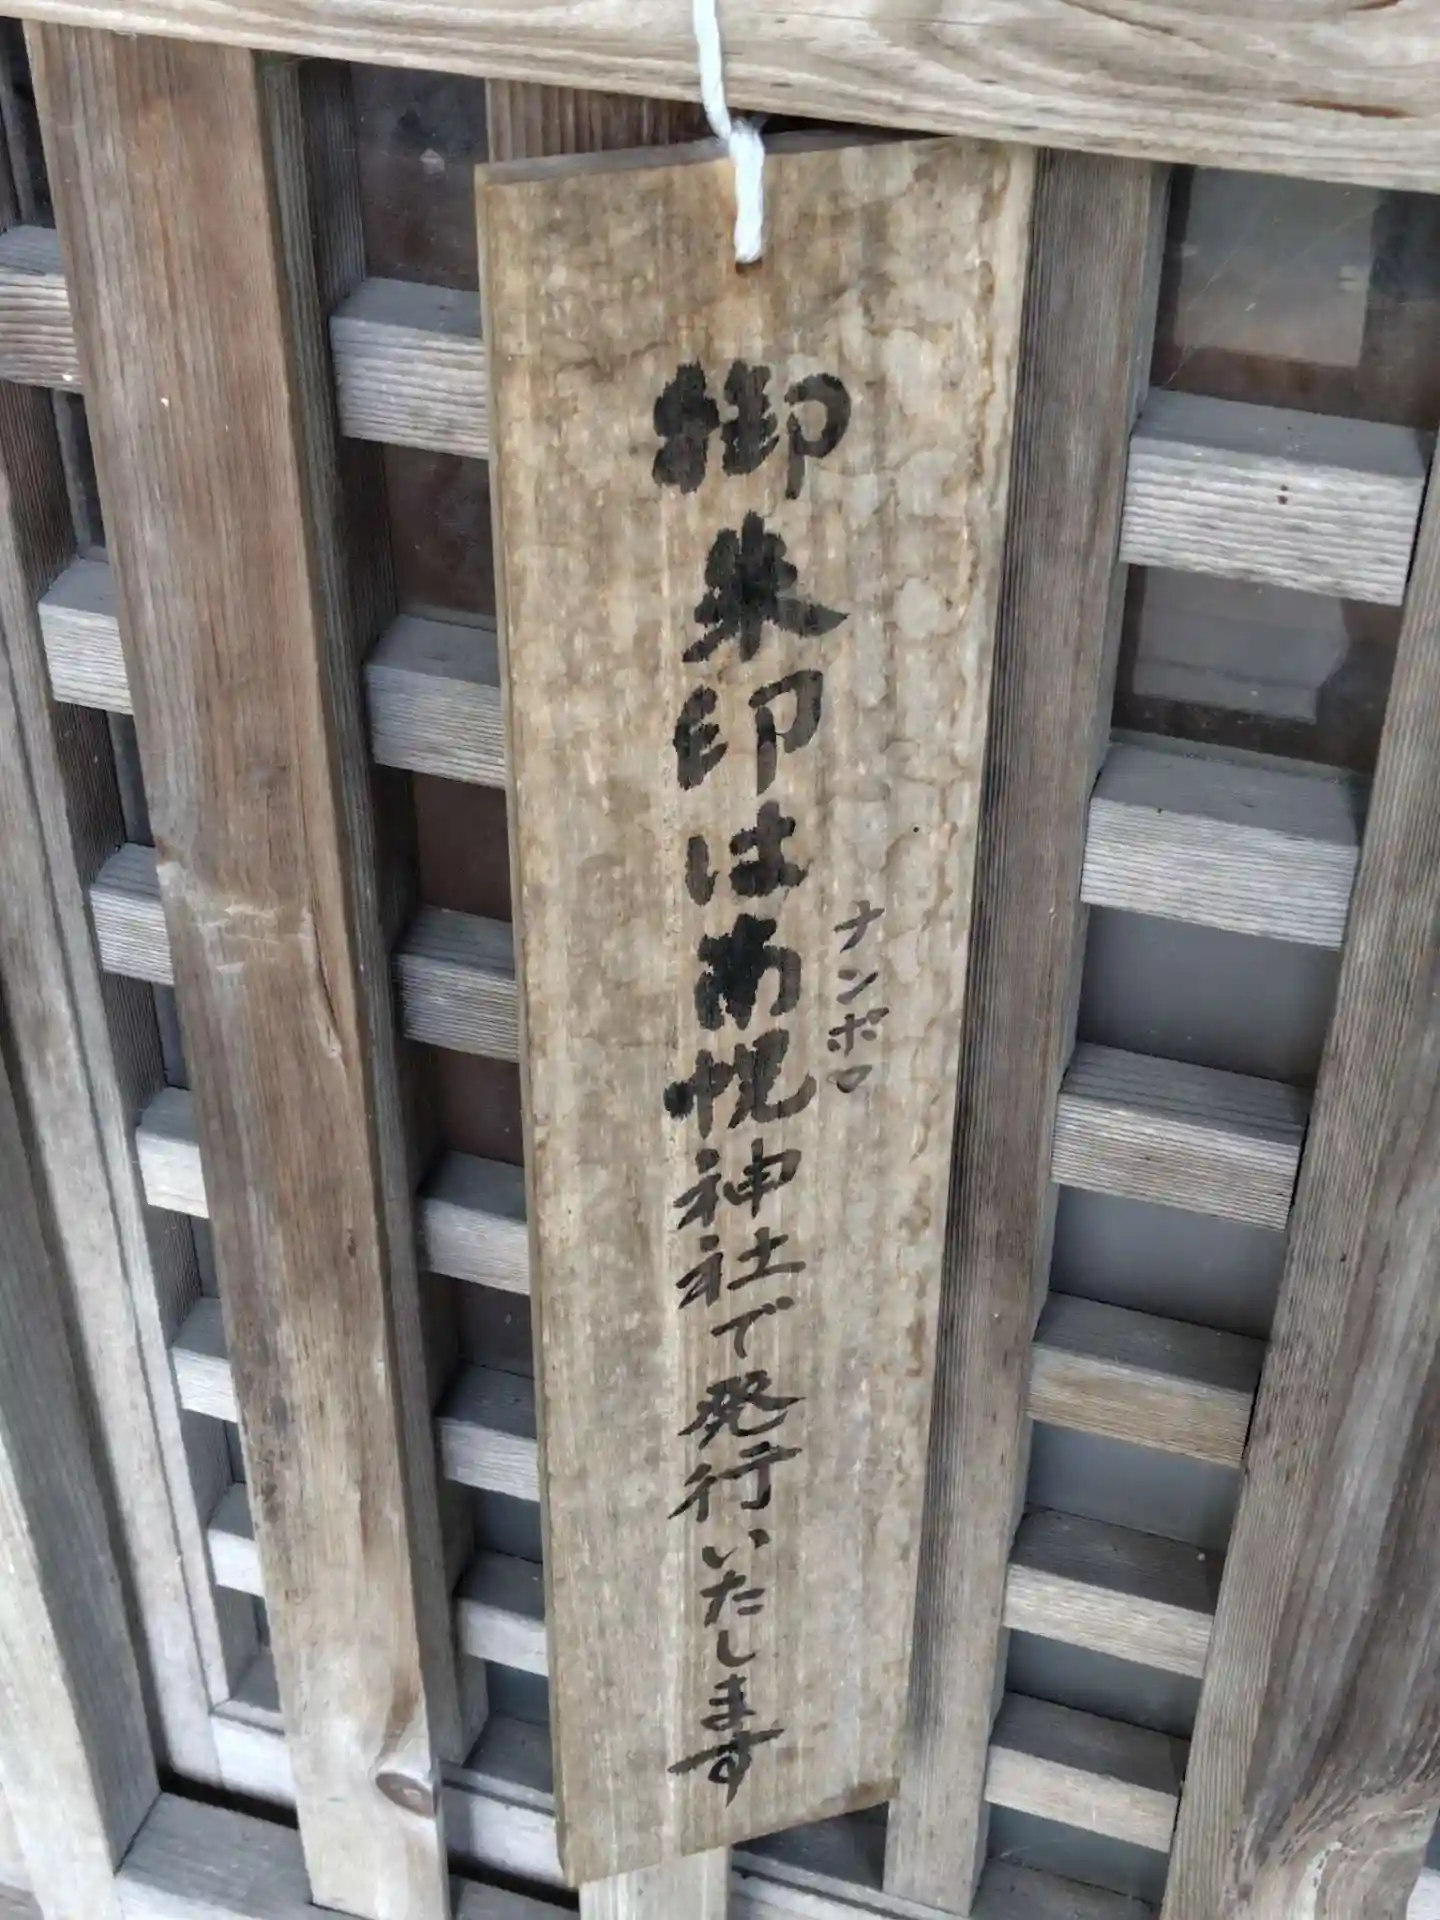 御朱印は南幌神社で発行いたします
ナンポロ